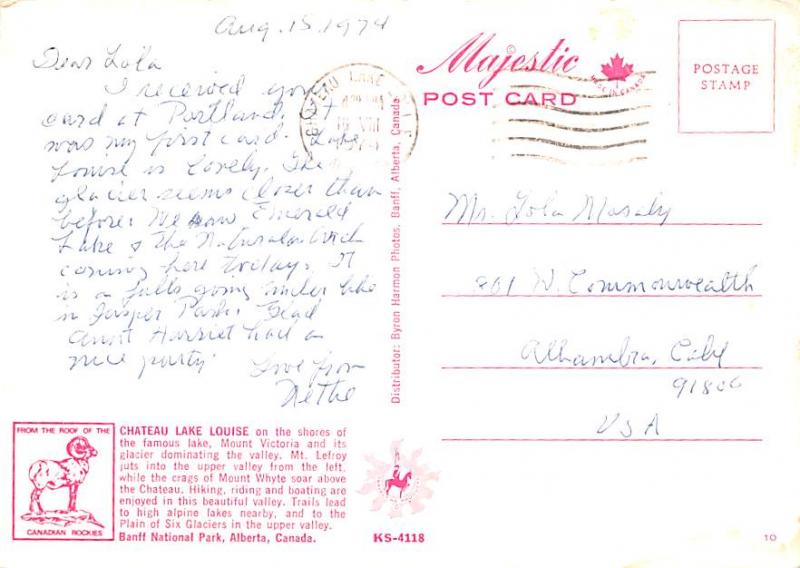 Aug. 15, 1974
Dear Lola
I received your
card at Portland. It
was my first card. Lake
Louise is lovely. The
glacier seems closer than
before. We saw Emerald
Lake & the Natural Arch
coming here today. It
is a falls going under like
in Jasper Park. Glad
Aunt Harriet had a
nice party.
Love from
CHATEAU LAKE
Majestic
MADE IN CANADA
POST CARD
POSTAGE
STAMP
Distributor: Byron Harmon Photos, Banff, Alberta, Canada
Lola
801 W. Commonwealth
Alhambra, Calif
USA
FROM THE ROOF OF THE
CANADIAN ROCKIES
CHATEAU LAKE LOUISE on the shores of
the famous lake, Mount Victoria and its
glacier dominating the valley. Mt. Lefroy
juts into the upper valley from the left,
while the crags of Mount Whyte soar above
the Chateau. Hiking, riding and boating are
enjoyed in this beautiful valley. Trails lead
to high alpine lakes nearby, and to the
Plain of Six Glaciers in the upper valley.
Banff National Park, Alberta, Canada.
KS-4118
10